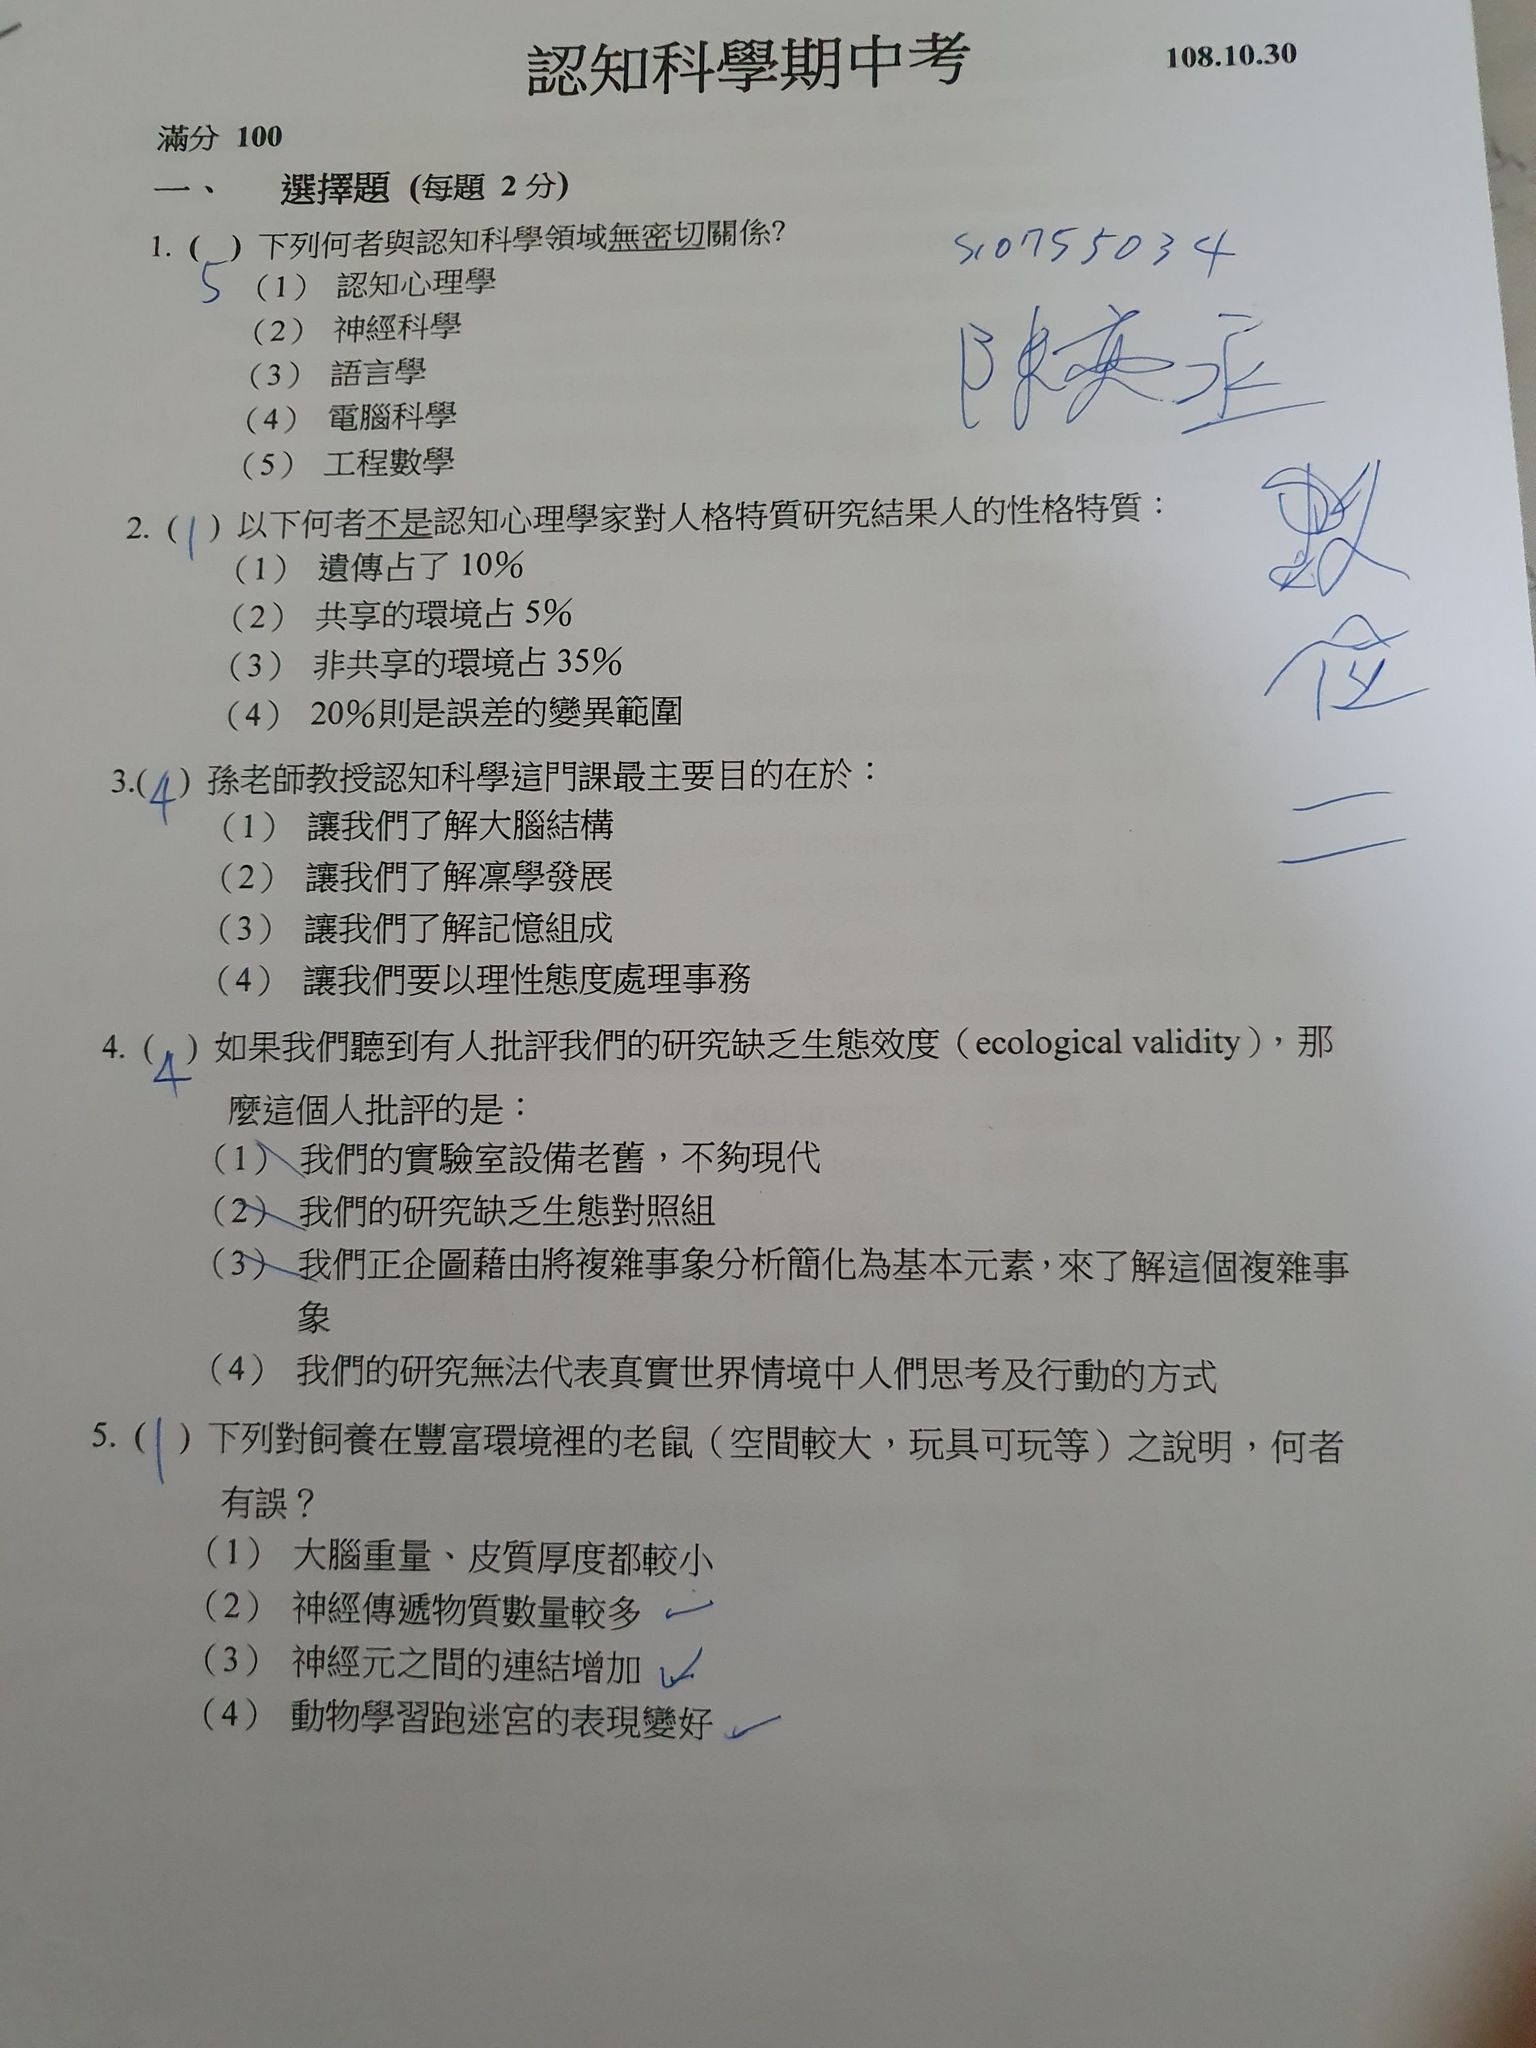 認知科學期中考
108.10.30
滿分 100
一、 選擇題 (每題 2 分)
1. ( 5 ) 下列何者與認知科學領域無密切關係?
(1) 認知心理學
(2) 神經科學
(3) 語言學
(4) 電腦科學
(5) 工程數學
S10755034
陳奕丞
數
位
二
2. ( 1 ) 以下何者不是認知心理學家對人格特質研究結果人的性格特質：
(1) 遺傳占了 10%
(2) 共享的環境占 5%
(3) 非共享的環境占 35%
(4) 20%則是誤差的變異範圍
3.( 4 ) 孫老師教授認知科學這門課最主要目的在於：
(1) 讓我們了解大腦結構
(2) 讓我們了解凜學發展
(3) 讓我們了解記憶組成
(4) 讓我們要以理性態度處理事務
4. ( 4 ) 如果我們聽到有人批評我們的研究缺乏生態效度（ecological validity），那
麼這個人批評的是：
(1) 我們的實驗室設備老舊，不夠現代
(2) 我們的研究缺乏生態對照組
(3) 我們正企圖藉由將複雜事象分析簡化為基本元素，來了解這個複雜事
象
(4) 我們的研究無法代表真實世界情境中人們思考及行動的方式
5. ( 1 ) 下列對飼養在豐富環境裡的老鼠（空間較大，玩具可玩等）之說明，何者
有誤？
(1) 大腦重量、皮質厚度都較小
(2) 神經傳遞物質數量較多
(3) 神經元之間的連結增加
(4) 動物學習跑迷宮的表現變好